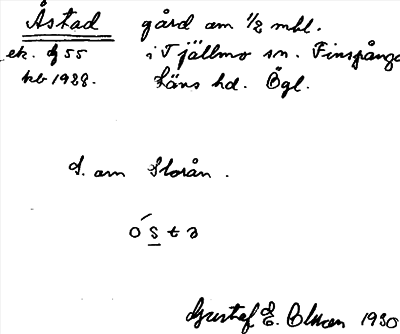 Åstad gård om 1/2 mtl.
ek. bl 55 i Tjällmo sn. Finspånga
kb 1928. läns hd. Ögl.
S. om Storån.
ósta
Gustaf E. Olsson 1930